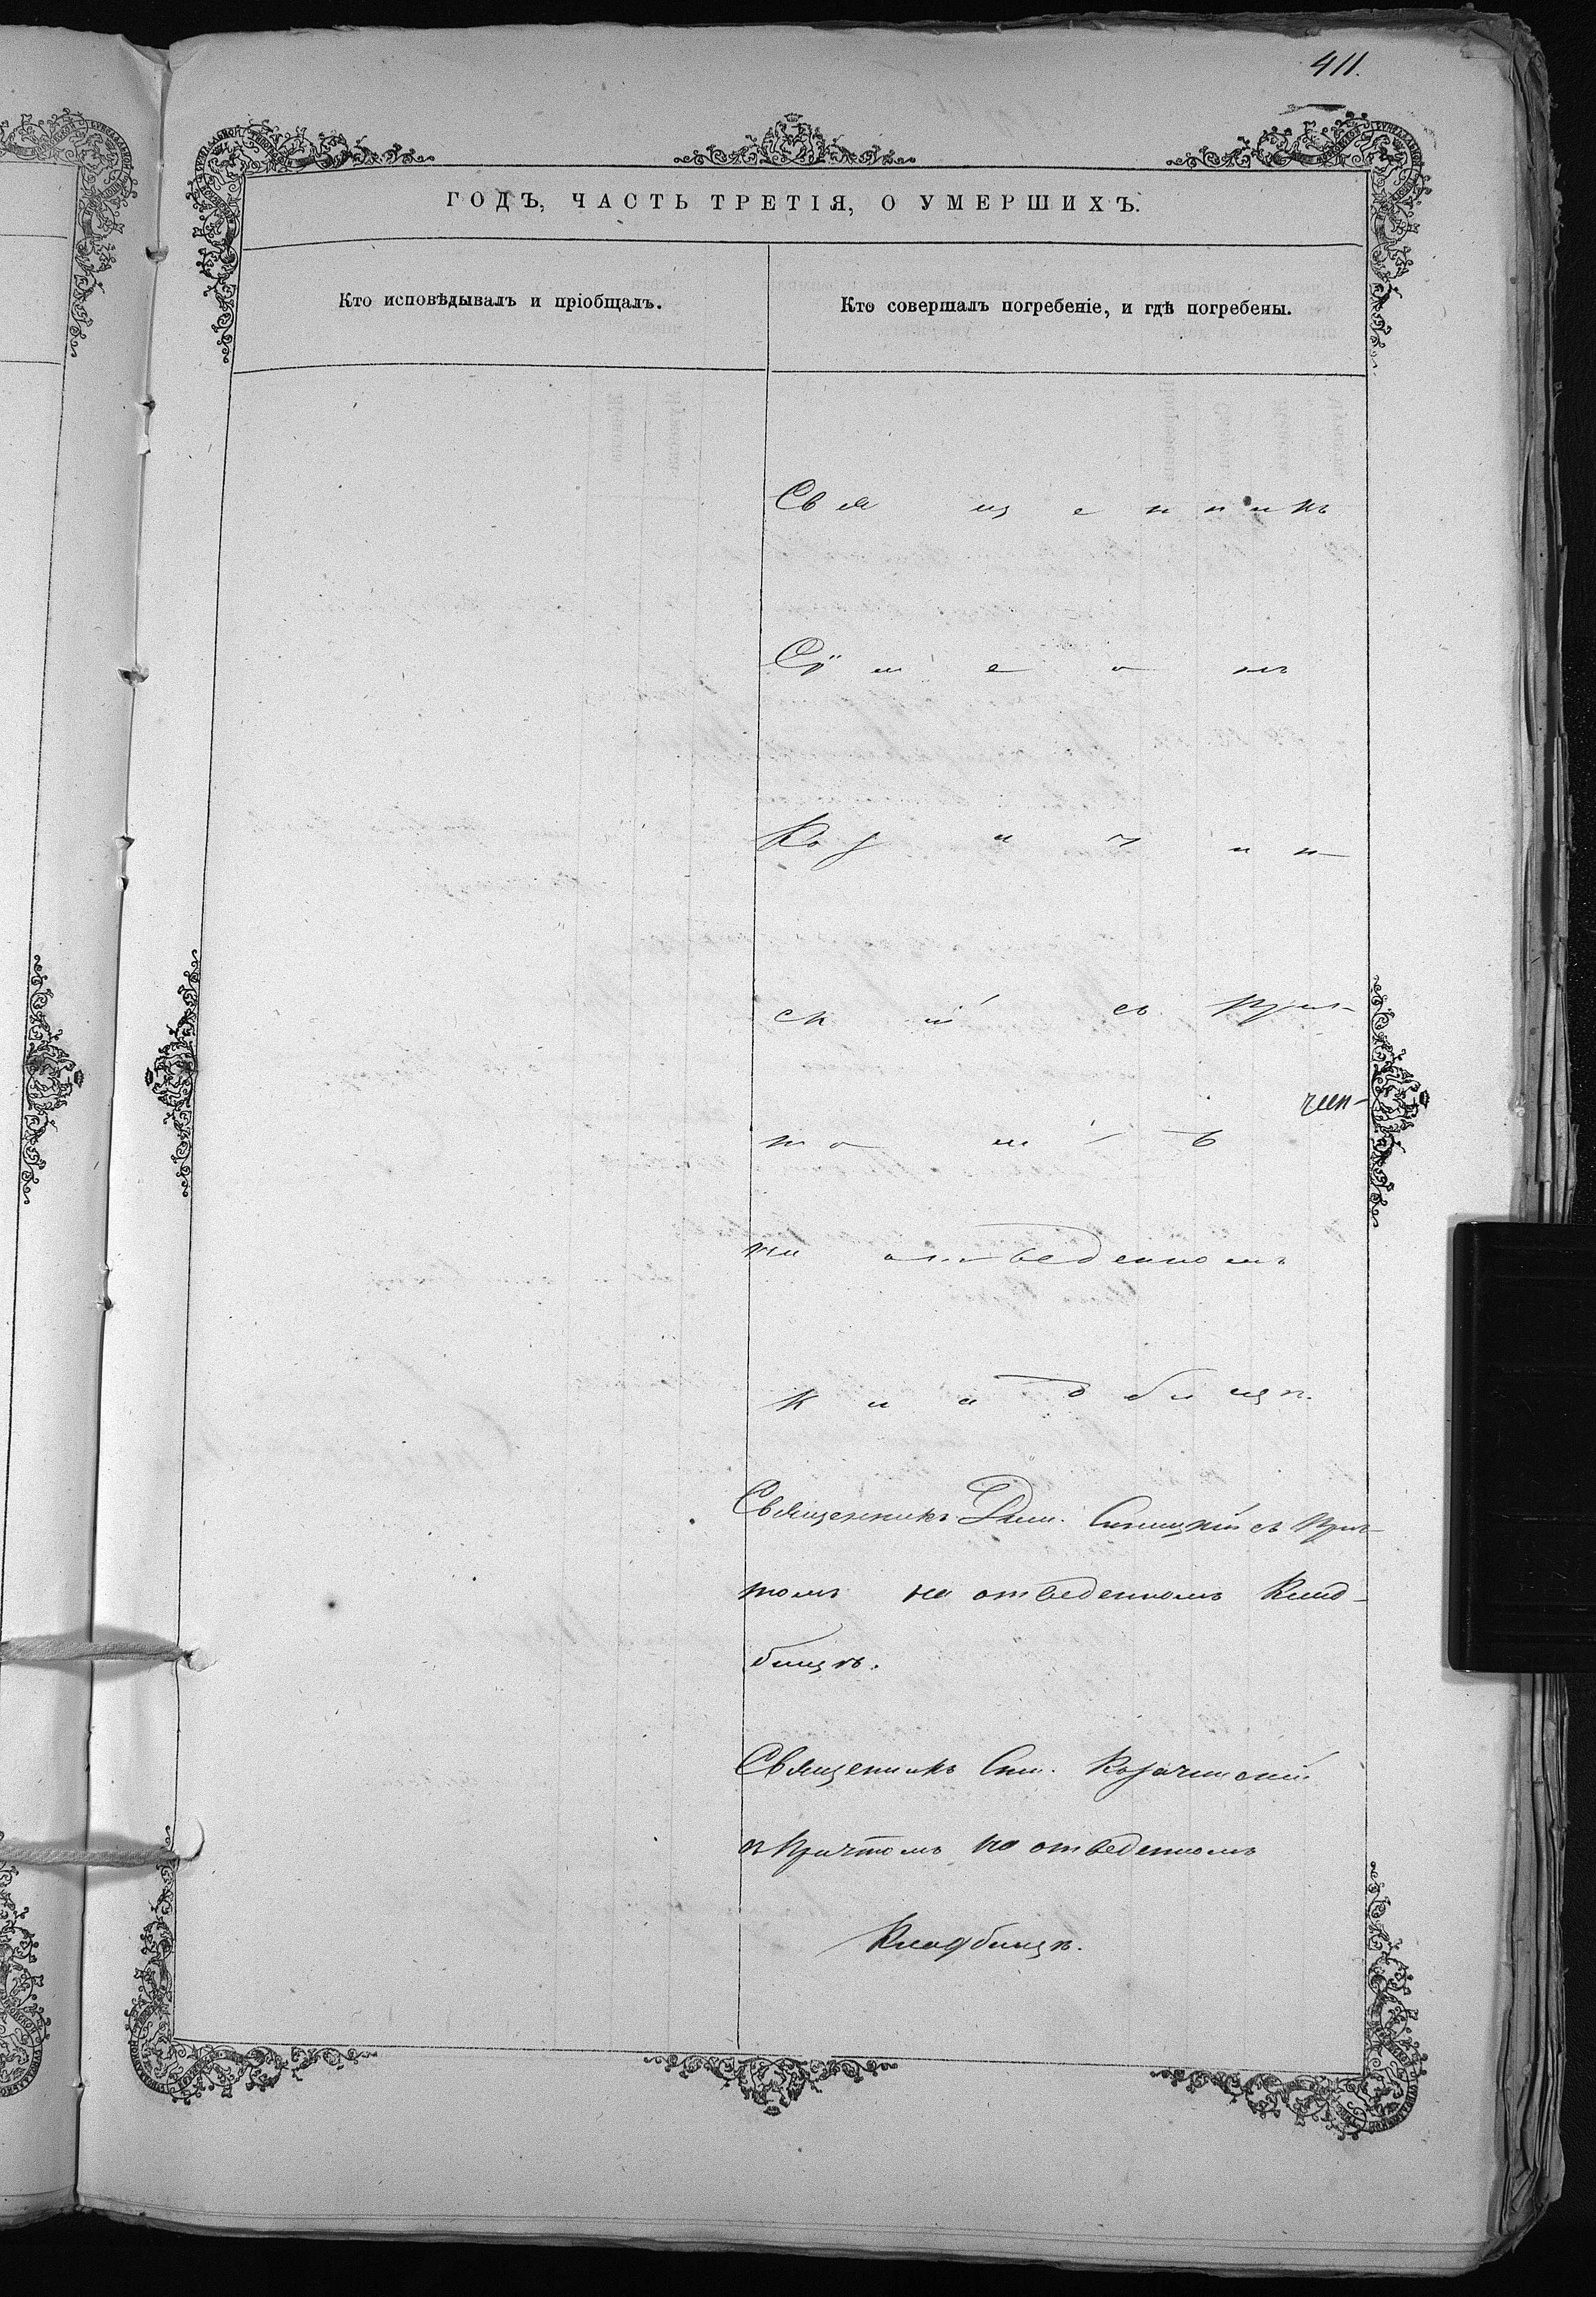 411.
ГОДЪ, ЧАСТЬ ТРЕТІЯ, О УМЕРШИХЪ.
Кто исповѣдывалъ и пріобщалъ.
Кто совершалъ погребеніе, и гдѣ погребены.
Священникъ
Сѵмеонъ
Козачин
скій съ прич-
томъ
на отведенномъ
кладбищѣ.
Священникъ Дим. Синицкій съ прич-
томъ на отведенномъ клад-
бищѣ.
Священикъ Сим. Козачинскій
съ причтомъ на отведенномъ
кладбищѣ.